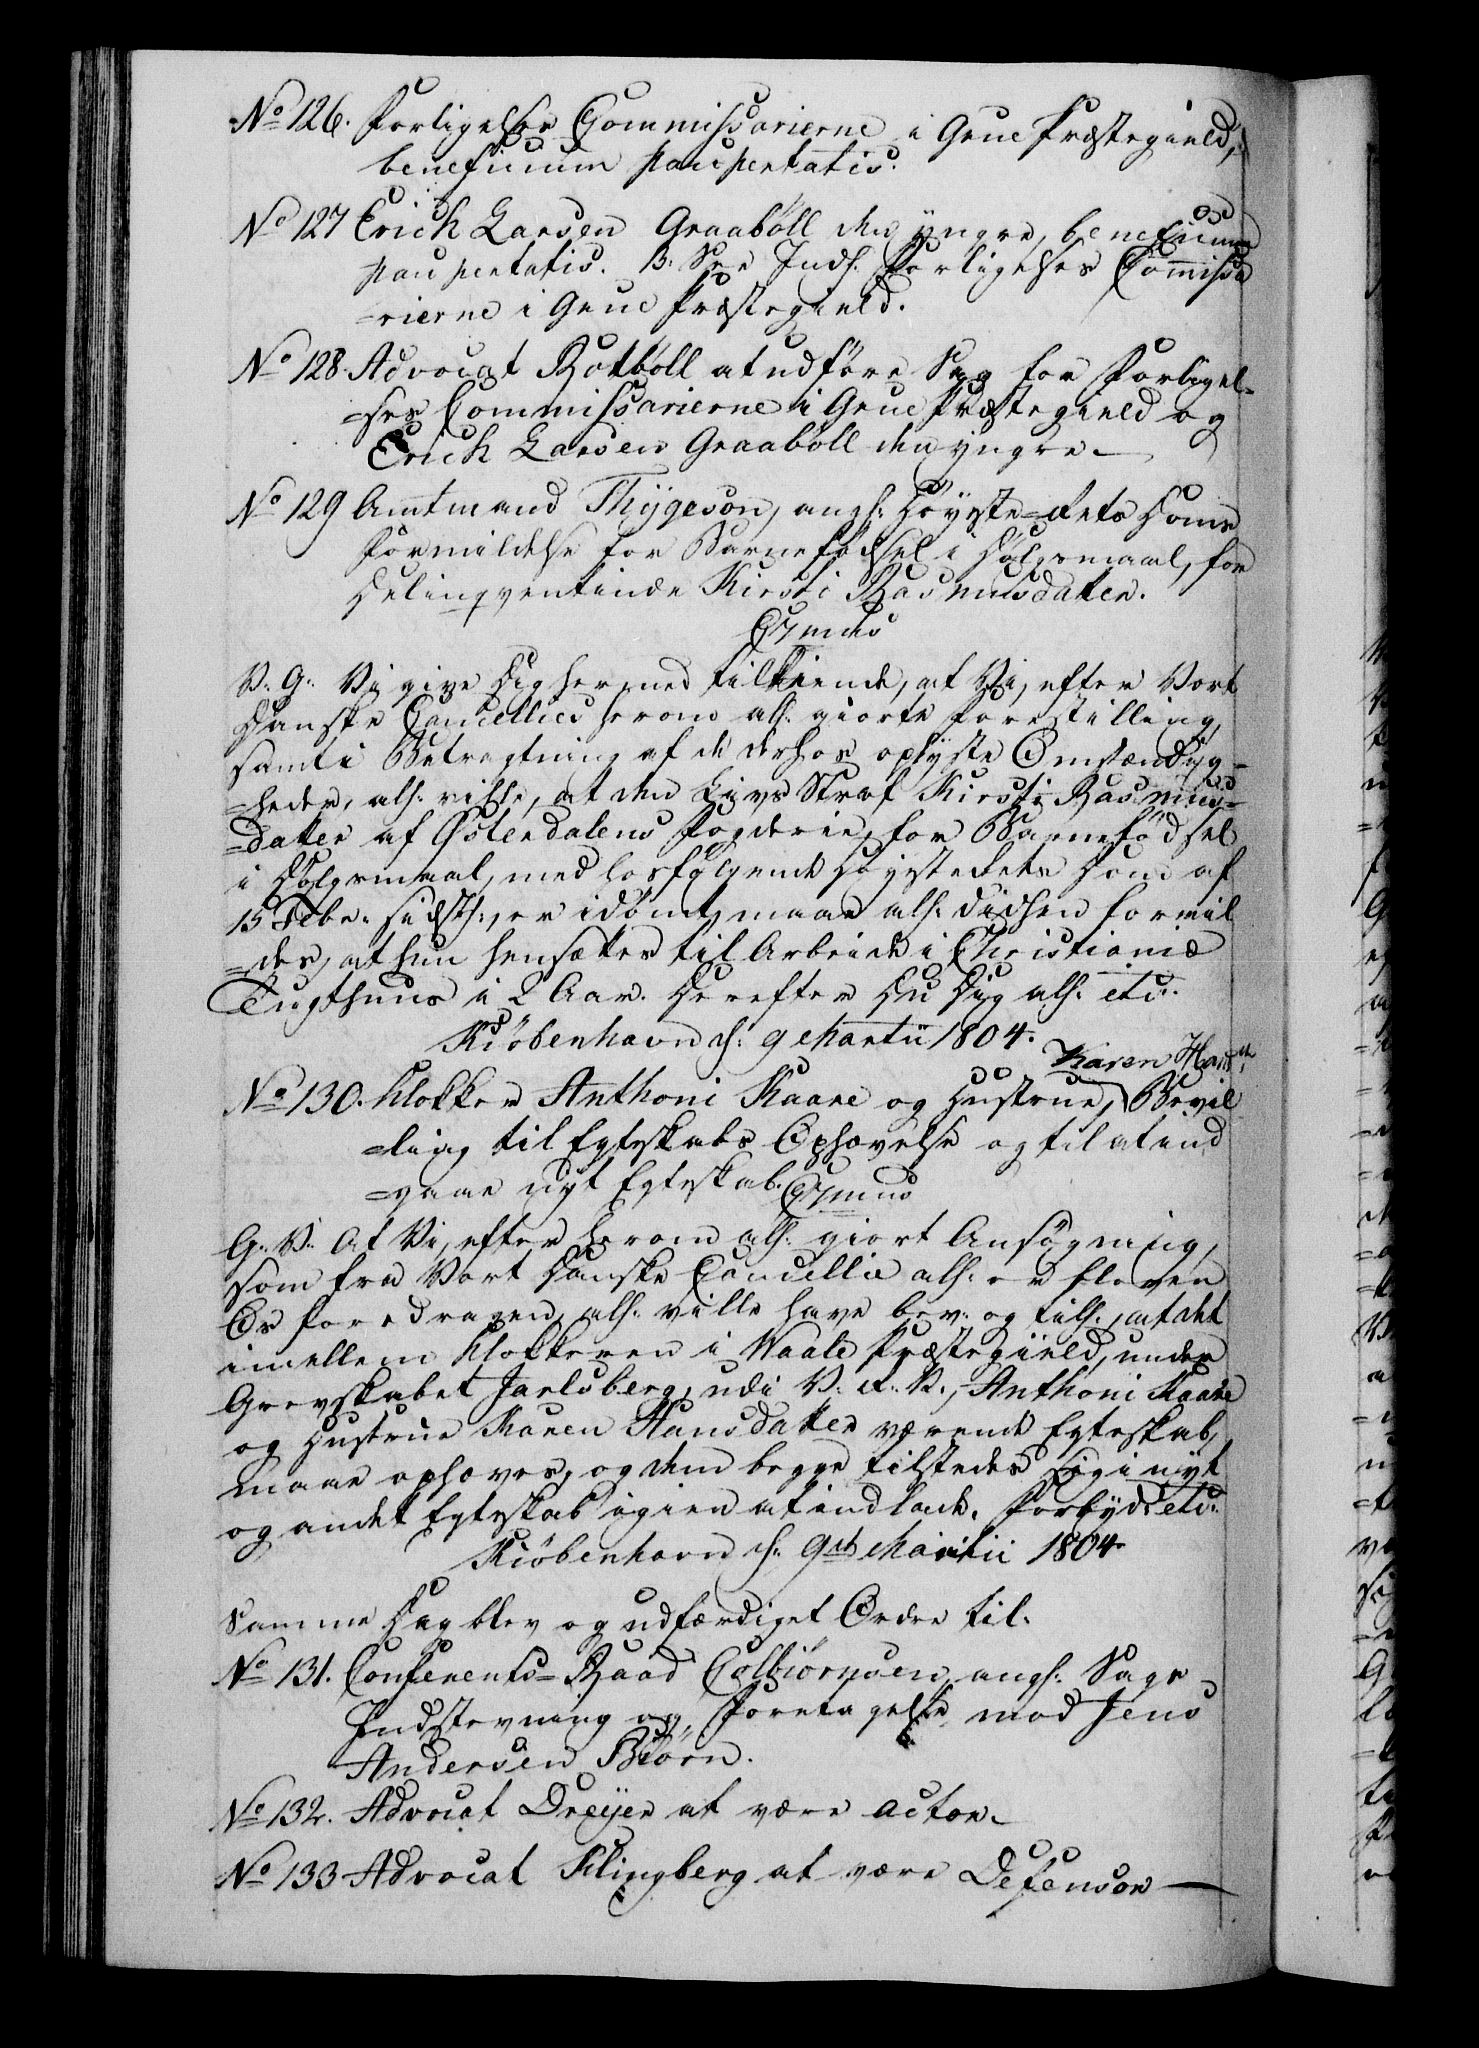 No 126. Forligelses Commissarierne i Grue Præstegield,
beneficium paupertatis.
No 127 Erich Larsen Graaböll den yngre, beneficium
paupertatis. B: See Indf: Forligelses Com̅issa
=rierne i Grue Præstegield.
No 128. Advocat Rotböll at udföre Sag for Forligel=
=ses Commissarierne i Grue Præstegield og
Erich Larsen Graaböll den yngre.
No 129 Am̅tmand Thygeson, angl: Höyeste=Rets Doms
Formildelse for Barnefödsel i Dölgsmaal, for
Delinqventinde Kirsti Rasmusdatter.
C 7mus
V: G: Vi give Dig hermed tilkiende, at Vi, efter Vort
Danske Cancellies herom all: giorte Forestilling,
samt i Betragtning af de derhos oplyste Omstændig=
=heder, all: ville, at den Livs Straf Kirsti Rasmus=
=datter af Østerdalens Fogderie, for Barnefödsel
i Dölgsmaal, ved hosfölgende Höyesterets Dom af
15 Febr: sidstl:, er idömt, maae all: didhen formil
=des, at hun hensættes til Arbeide i Christianiæ
Tugthuus i 2 Aar. Derefter Du Dig all: etc:
Kiöbenhavn d: 9 Martii 1804.
Karen Hansd:
No 130. Klokker Anthoni Kaare og Hustrue, Bevil
=ling til Egteskabs Ophævelse og til at ind
=gaae nyt Egteskab. C 7mus
G: V: At Vi, efter herom all: giort Ansögning,
som fra Vort Danske Cancellie all: er bleven
Os foredragen, all: ville have bev: og till:, at det
imellem Klokkeren i Waale Præstegield, under
Grevskabet Jarlsberg, udi V: R: N:, Anthoni Kaare
og Hustrue Karen Hansdatter værende Egteskab,
maae ophæves, og dem begge tilstedes sig i nyt
og andet Egteskab igien at indlade. Forbyd: etc:
Kiöbenhavn d: 9de Martii 1804.
Samme Dag blev og udfærdiget Ordre til.
No 131. Conferents=Raad Colbiörnsen, angl: Sags
Indstevning og Foretagelse mod Jens
Andersen Biörn.
No 132. Advocat Dreyer at være Actor.
No 133 Advocat Klingberg at være Defensor